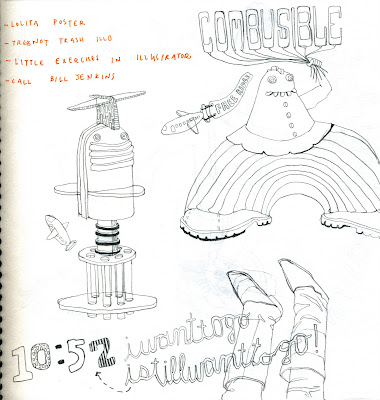 -LOLITA POSTER
-THERNOT TRASH ILLO
-LITTLE EXERCISES IN ILLUSTRATOR
-CALL BILL JENKINS
COMBUSIBLE
10:52
iwanttogo
istillwanttogo!